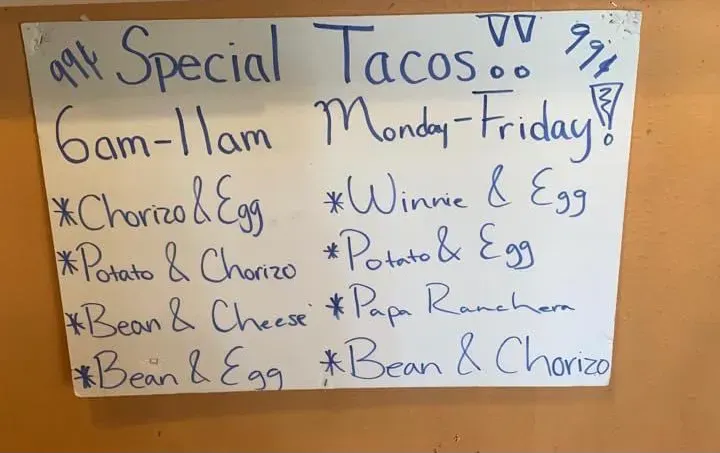 99¢ Special Tacos!! 99¢
6am-11am Monday-Friday!
*Chorizo & Egg
*Potato & Chorizo
*Bean & Cheese
*Bean & Egg
*Winnie & Egg
*Potato & Egg
*Papa Ranchera
*Bean & Chorizo